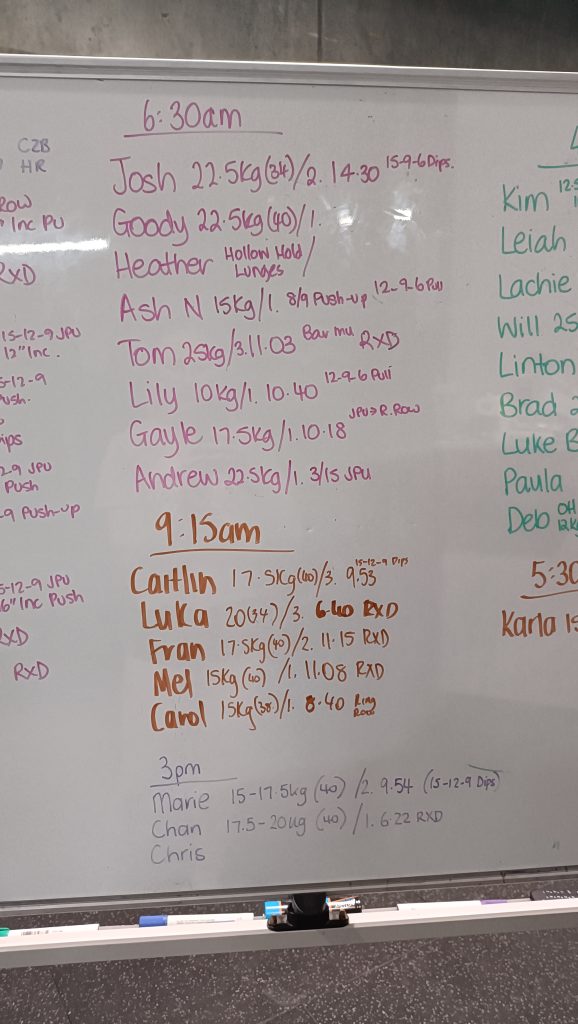 C2B
HR
Row
" Inc PU
RXD
15-12-9 JPU
12" Inc.
5-12-9
ush.
ips
2-9 JPU
Push
-9 Push-up
5-12-9 JPU
6" Inc Push
RXD
RXD
6:30am
Josh 22.5kg(34)/2. 14.30 15-9-6 Dips.
Goody 22.5kg(40)/1.
Heather Hollow Hold / Lunges
Ash N 15kg/1. 8/9 Push-up 12-9-6 Pull
Tom 25kg/3.11.03 Bar mu RXD
Lily 10kg/1. 10.40 12-9-6 Pull
Gayle 17.5kg/1.10.18 JPU>R.Row
Andrew 22.5kg/1. 3/15 JPU
9:15am
Caitlin 17.5kg(40)/3. 9.53 15-12-9 Dips
Luka 20(34)/3. 6.40 RXD
Fran 17.5kg(40)/2. 11.15 RXD
Mel 15kg(40) /1. 11.08 RXD
Carol 15kg(38)/1. 8.40 Ring Row
3pm
Marie 15-17.5kg (40) /2. 9.54 (15-12-9 Dips)
Chan 17.5-20kg (40) /1. 6.22 RXD
Chris
Kim 12.5
Leiah
Lachie
Will 25
Linton
Brad 2
Luke B
Paula
Deb OH 12kg
5:30
Karla 15